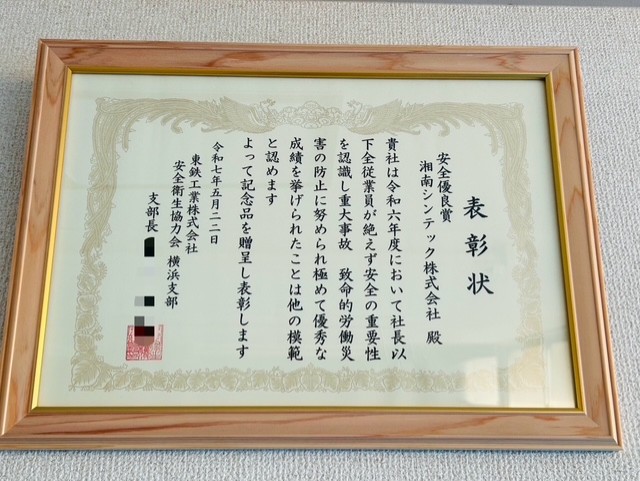 表彰状
安全優良賞
湘南シンテック株式会社 殿
貴社は令和六年度において社長以
下全従業員が絶えず安全の重要性
を認識し重大事故 致命的労働災
害の防止に努められ極めて優秀な
成績を挙げられたことは他の模範
と認めます
よって記念品を贈呈し表彰します
令和七年五月二二日
東鉄工業株式会社
安全衛生協力会 横浜支部
支部長